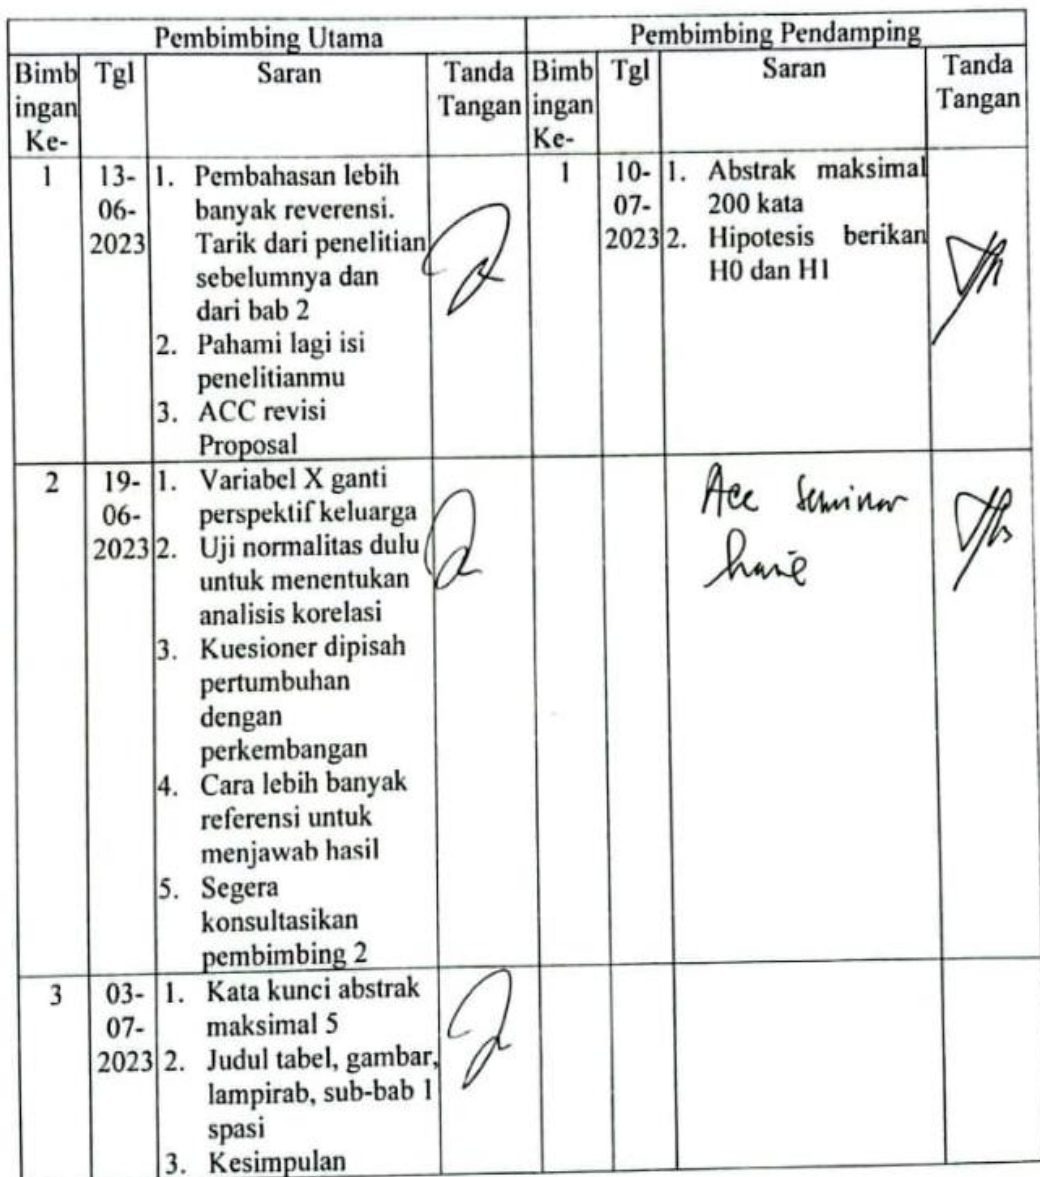 Pembimbing Utama
Pembimbing Pendamping
Bimb
ingan
Ke-
Tgl
Saran
Tanda
Tangan
Bimb
ingan
Ke-
Tgl
Saran
Tanda
Tangan
1
13-
06-
2023
1. Pembahasan lebih
banyak reverensi.
Tarik dari penelitian
sebelumnya dan
dari bab 2
2. Pahami lagi isi
penelitianmu
3. ACC revisi
Proposal
1
10-
07-
2023
1. Abstrak maksimal
200 kata
2. Hipotesis berikan
H0 dan H1
2
19-
06-
2023
1. Variabel X ganti
perspektif keluarga
2. Uji normalitas dulu
untuk menentukan
analisis korelasi
3. Kuesioner dipisah
pertumbuhan
dengan
perkembangan
4. Cara lebih banyak
referensi untuk
menjawab hasil
5. Segera
konsultasikan
pembimbing 2
Acc Seminar
3
03-
07-
2023
1. Kata kunci abstrak
maksimal 5
2. Judul tabel, gambar,
lampirab, sub-bab 1
spasi
3. Kesimpulan